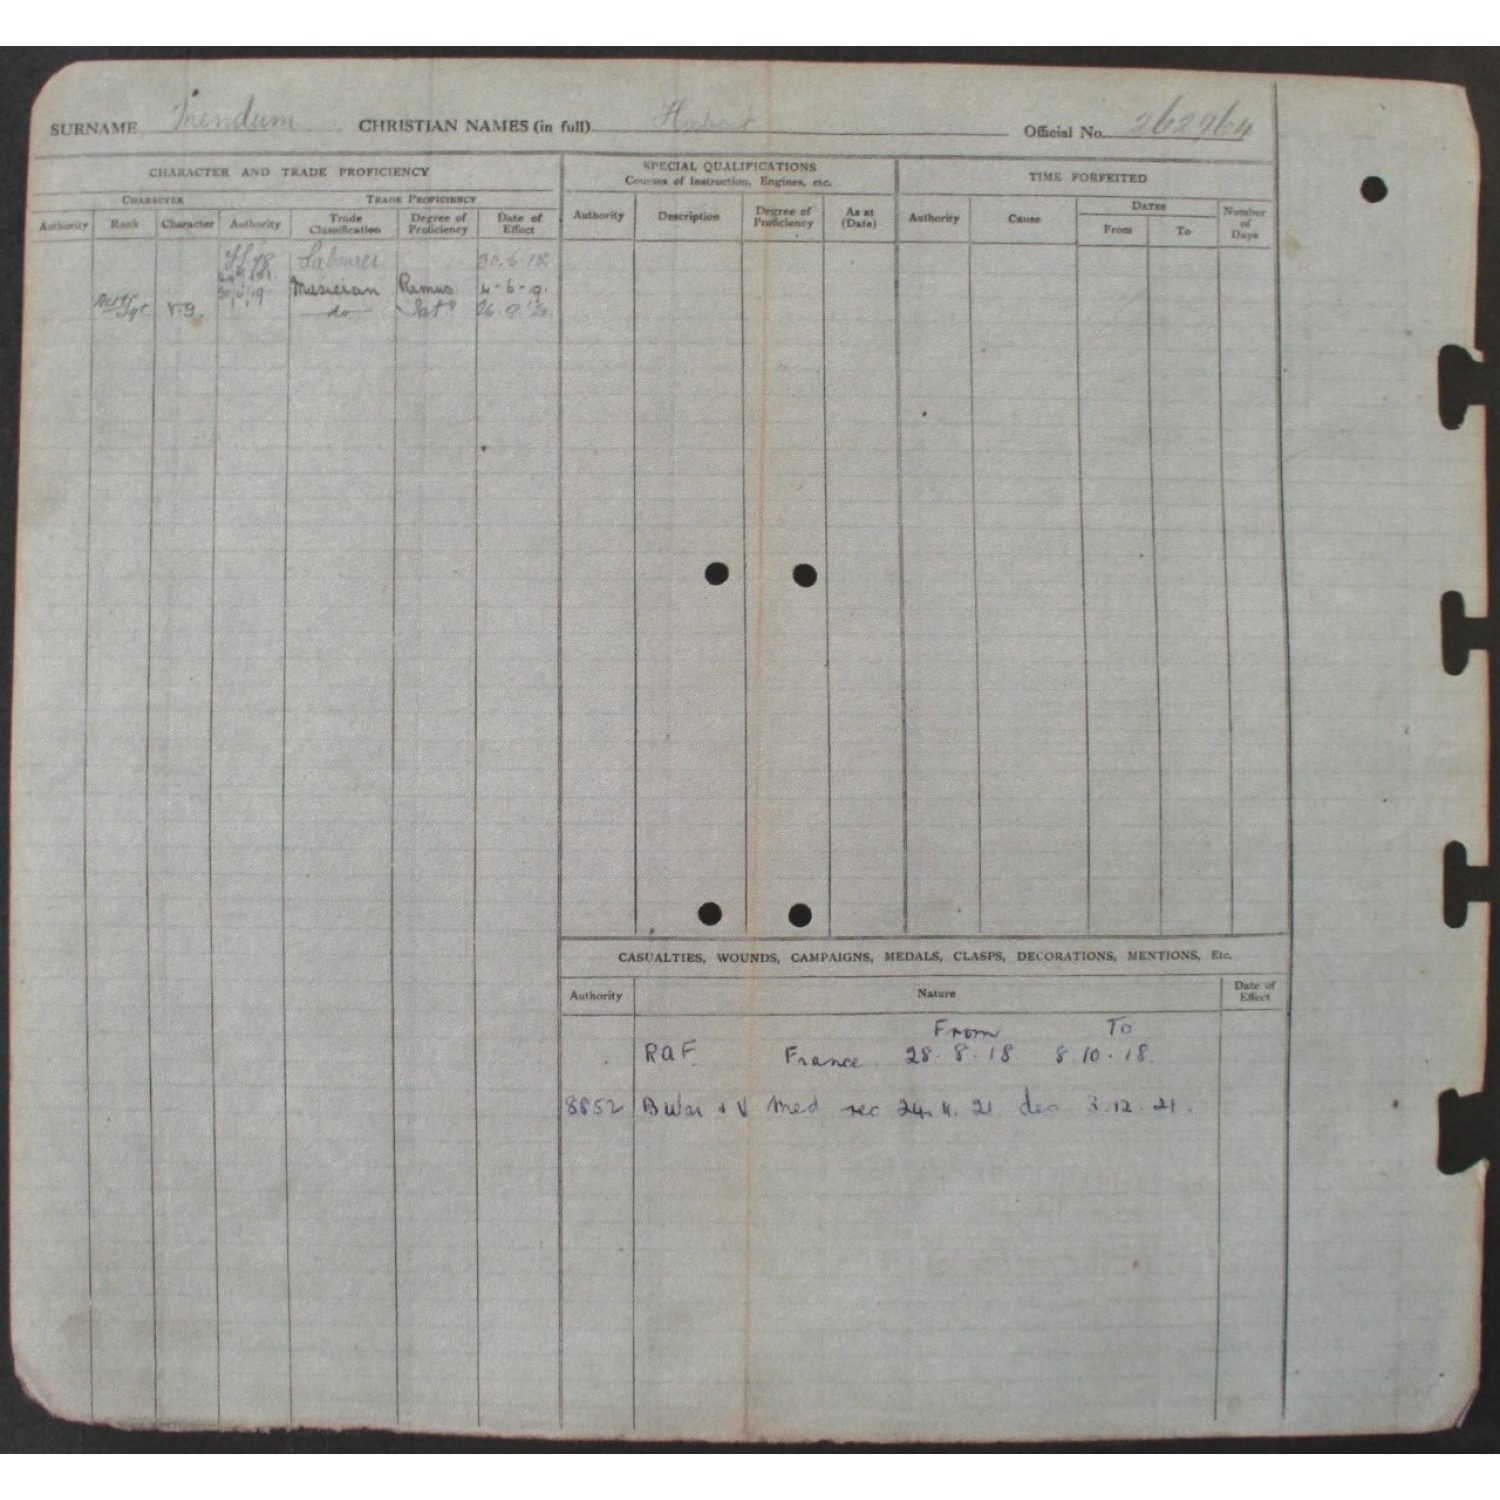 SURNAME Mendum CHRISTIAN NAMES (in full) Hubert Official No. 262964
CHARACTER AND TRADE PROFICIENCY
CHARACTER TRADE PROFICIENCY
Authority Rank Character Authority Trade Classification Degree of Proficiency Date of Effect
Labourer 30.6.18.
Musician Remus 4-6-19.
30/6/19
Sgt. V.G. do Sat
SPECIAL QUALIFICATIONS
Courses of Instruction, Engines, etc.
Authority Description Degree of Proficiency As at (Date)
TIME FORFEITED
Authority Cause DATES Number of Days
From To
CASUALTIES, WOUNDS, CAMPAIGNS, MEDALS, CLASPS, DECORATIONS, MENTIONS, Etc.
Authority Nature Date of Effect
From To
RAF. France. 28.8.18 8.10.18.
8852 B War + V Med rec 24.11.21 des 3.12.21.